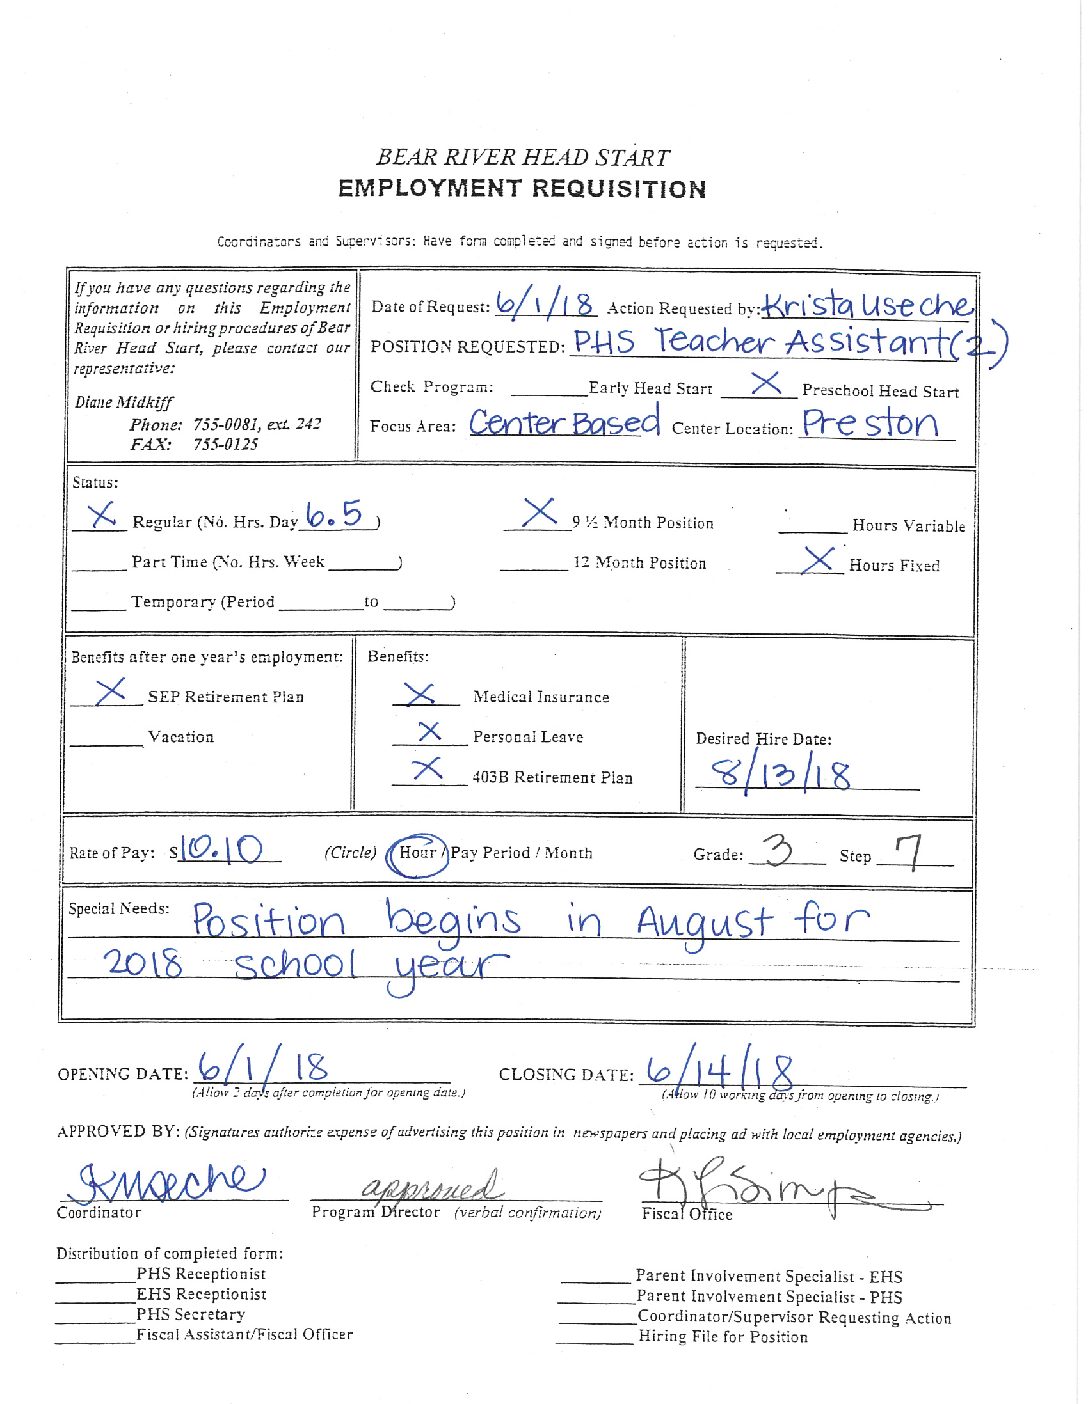 BEAR RIVER HEAD START
EMPLOYMENT REQUISITION
Coordinators and Supervisors: Have form completed and signed before action is requested.
If you have any questions regarding the
information on this Employment
Requisition or hiring procedures of Bear
River Head Start, please contact our
representative:
Diane Midkiff
Phone: 755-0081, ext. 242
FAX: 755-0125
Date of Request: 6/1/18 Action Requested by: Krista Useche
POSITION REQUESTED: PHS Teacher Assistant (2)
Check Program: ______ Early Head Start X Preschool Head Start
Focus Area: Center Based Center Location: Preston
Status:
X Regular (No. Hrs. Day 6.5 ) X 9 ½ Month Position ______ Hours Variable
______ Part Time (No. Hrs. Week ______) ______ 12 Month Position X Hours Fixed
______ Temporary (Period ______ to ______)
Benefits after one year's employment:
X SEP Retirement Plan
______ Vacation
Benefits:
X Medical Insurance
X Personal Leave
X 403B Retirement Plan
Desired Hire Date:
8/13/18
Rate of Pay: $10.10 (Circle) Hour / Pay Period / Month Grade: 3 Step 7
Special Needs: Position begins in August for
2018 school year
OPENING DATE: 6/1/18 CLOSING DATE: 6/14/18
(Allow 2 days after completion for opening date.) (Allow 10 working days from opening to closing.)
APPROVED BY: (Signatures authorize expense of advertising this position in newspapers and placing ad with local employment agencies.)
KUseche approved
Coordinator Program Director (verbal confirmation) Fiscal Office
Distribution of completed form:
______ PHS Receptionist
______ EHS Receptionist
______ PHS Secretary
______ Fiscal Assistant/Fiscal Officer
______ Parent Involvement Specialist - EHS
______ Parent Involvement Specialist - PHS
______ Coordinator/Supervisor Requesting Action
______ Hiring File for Position